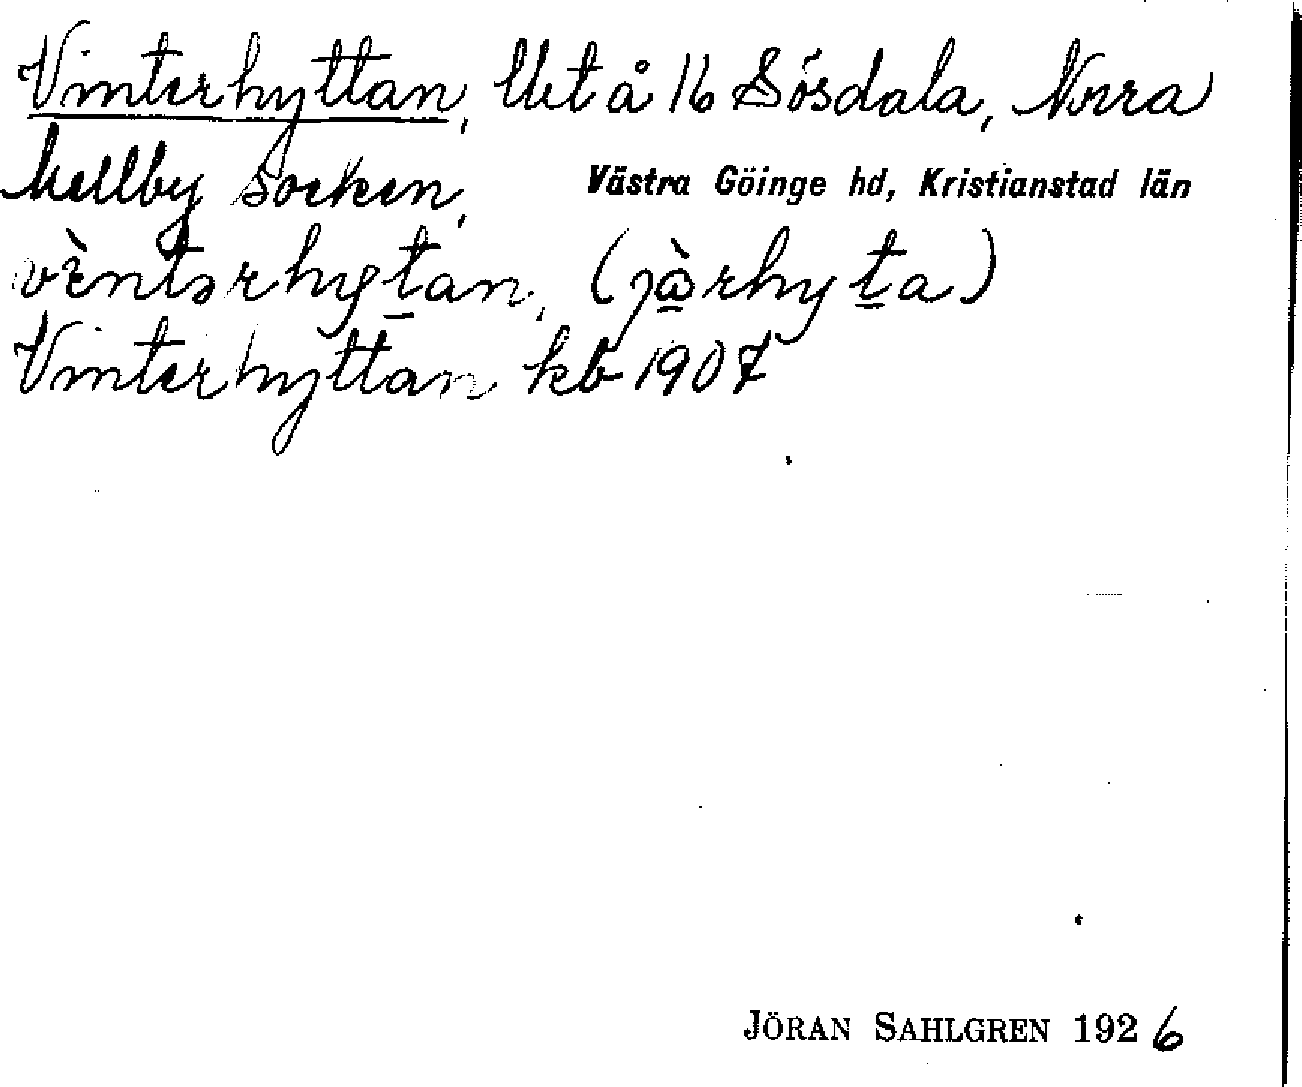 Vinterhyttan, Uet å 16 Sösdala, Norra
Mellby socken, Västra Göinge hd, Kristianstad län
vèntərhytan, (jàrhyta)
Vinterhyttan kb 1907
JÖRAN SAHLGREN 1926